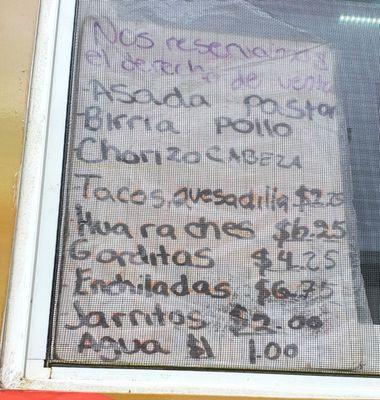 Nos reservamos
el derecho de venta
-Asada Pastor
-Birria pollo
-Chorizo CABEZA
-Tacos, quesadilla $2.25
-Huaraches $6.25
Gorditas $4.25
-Enchiladas $6.75
Jarritos $2.00
Agua $1 1.00